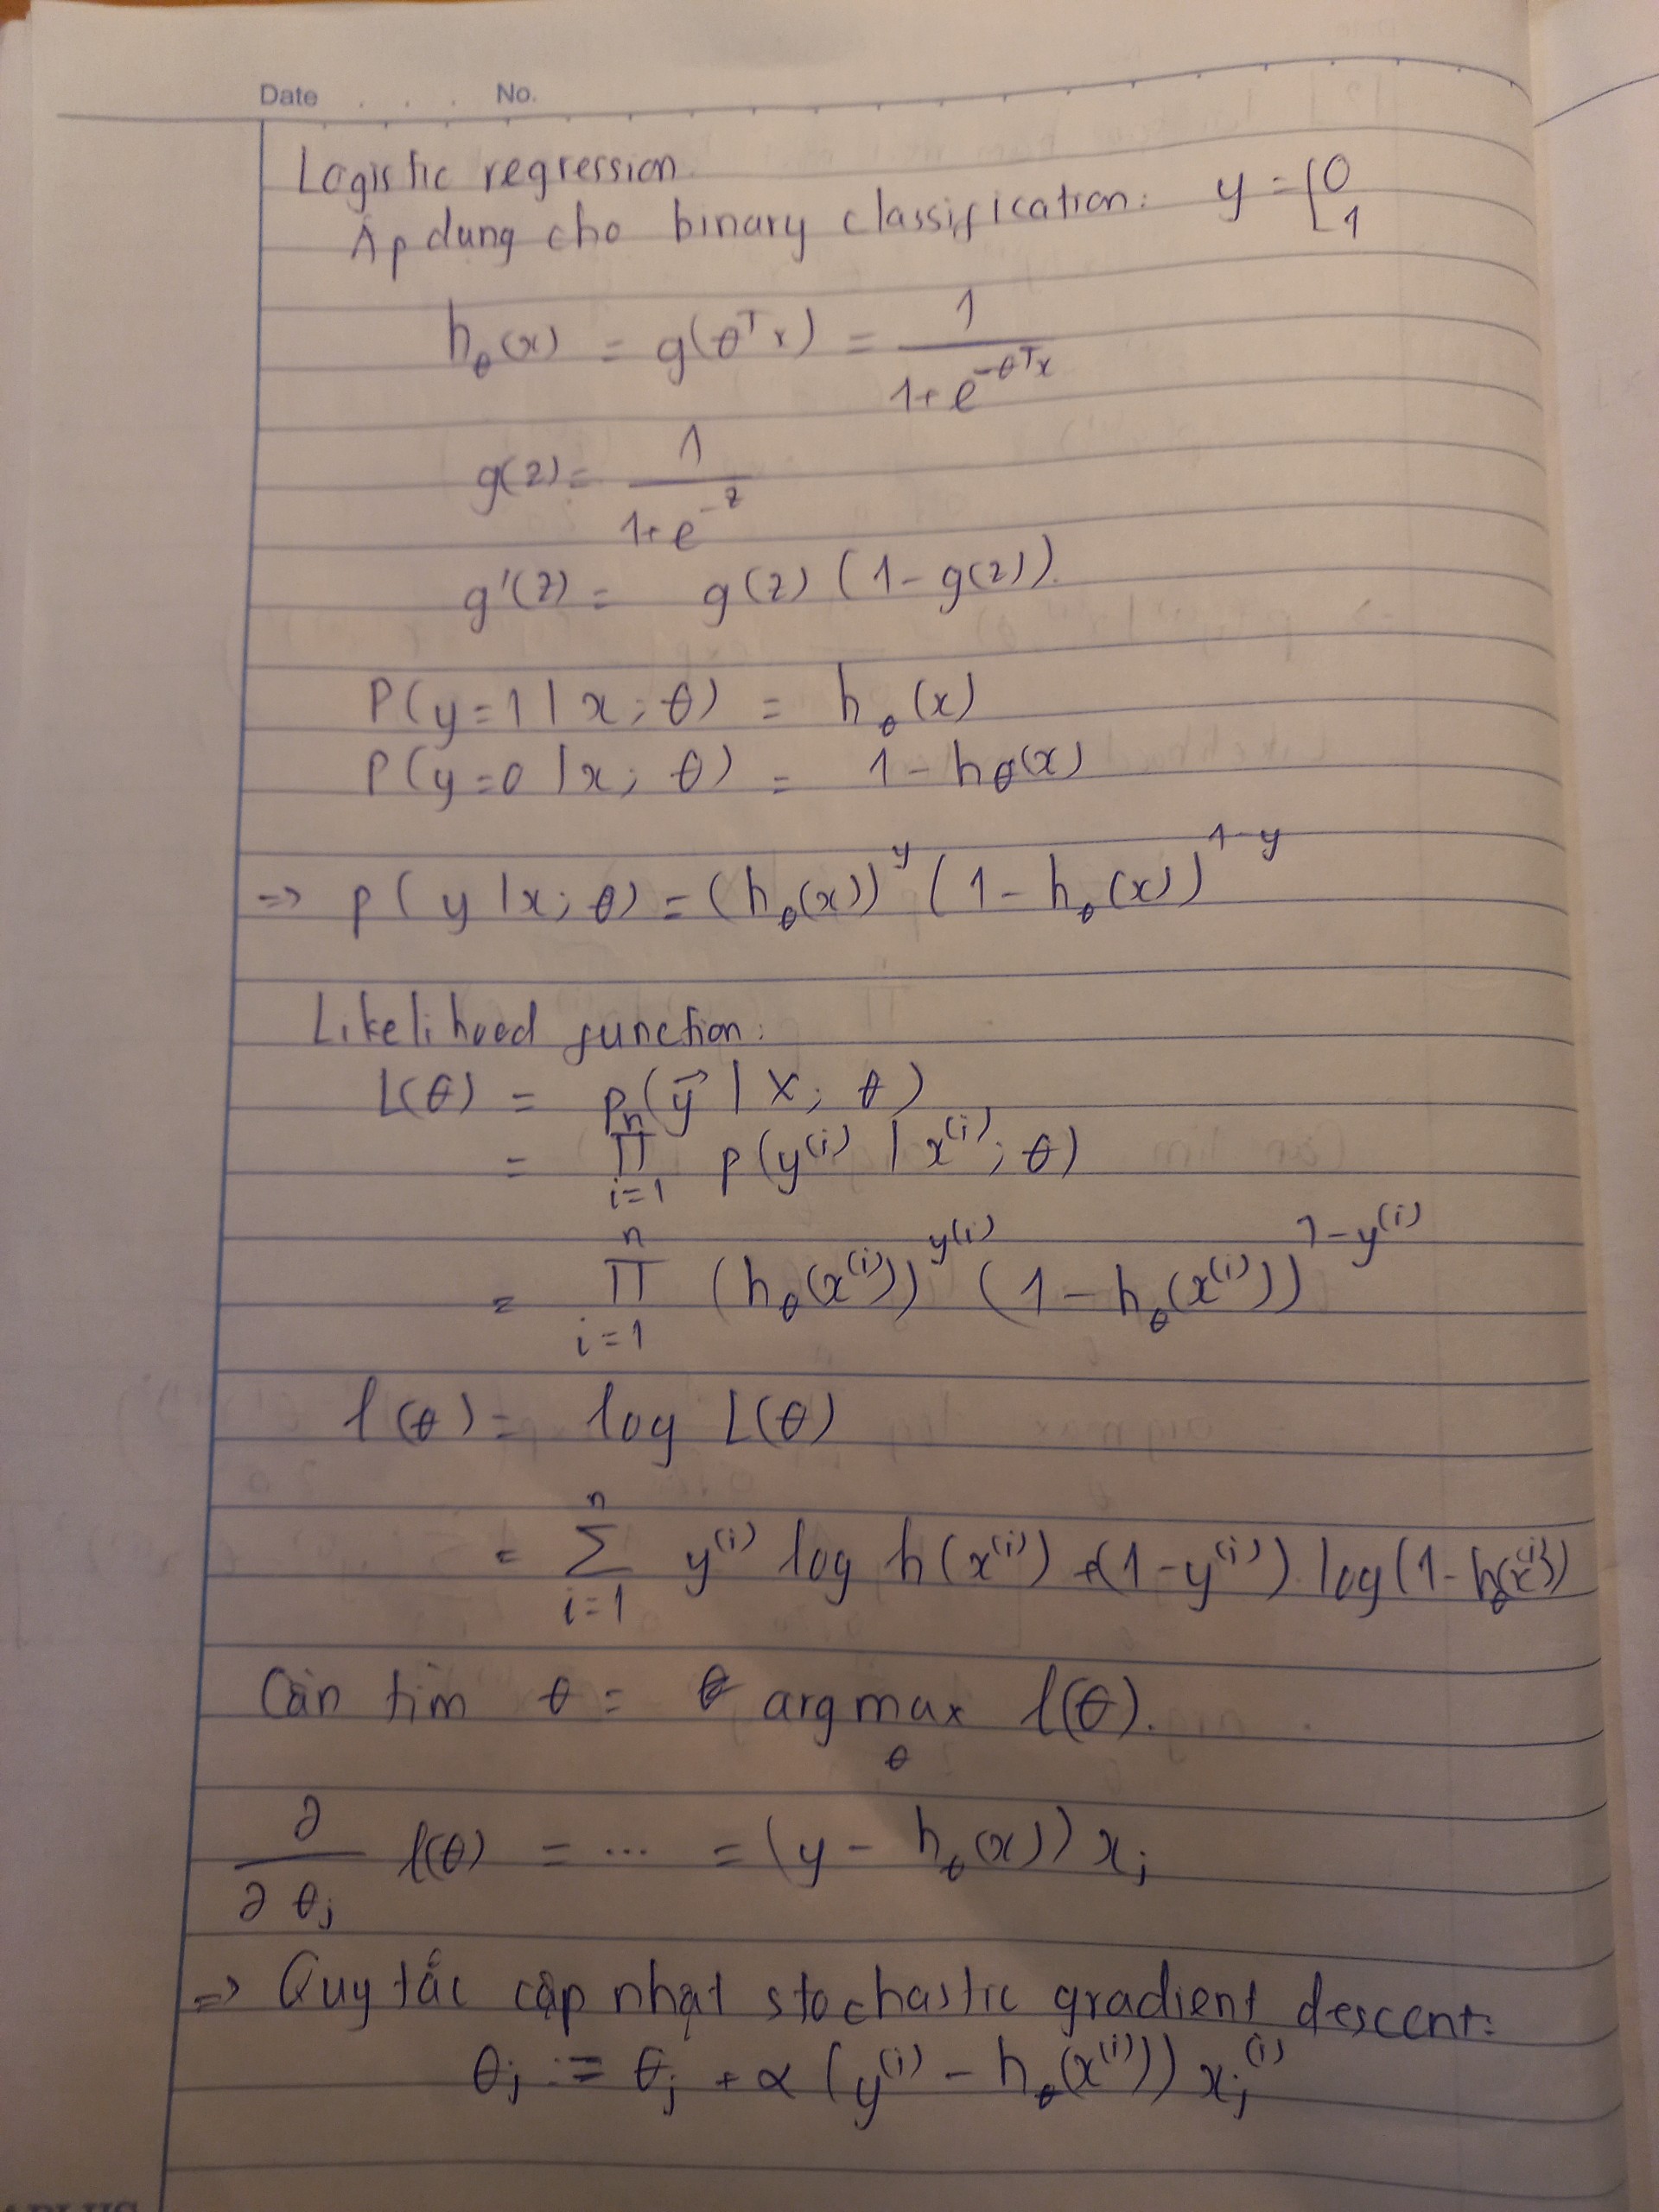 Date . . . No.
Logistic regression
Áp dụng cho binary classification: y = [0
1
hθ(x) = g(θᵀx) = 1 / (1 + e^(-θᵀx))
g(z) = 1 / (1 + e^(-z))
g'(z) = g(z) (1 - g(z)).
P(y=1 | x; θ) = hθ(x)
P(y=0 | x; θ) = 1 - hθ(x)
=> p(y | x; θ) = (hθ(x))^y (1 - hθ(x))^(1-y)
Likelihood function:
L(θ) = p(y⃗ | X; θ)
= ∏_{i=1}^{n} p(y⁽ⁱ⁾ | x⁽ⁱ⁾; θ)
= ∏_{i=1}^{n} (hθ(x⁽ⁱ⁾))^(y⁽ⁱ⁾) (1 - hθ(x⁽ⁱ⁾))^(1-y⁽ⁱ⁾)
l(θ) = log L(θ)
= ∑_{i=1}^{n} y⁽ⁱ⁾ log h(x⁽ⁱ⁾) + (1 - y⁽ⁱ⁾) log(1 - hθ(x⁽ⁱ⁾))
Cần tìm θ = arg max_θ l(θ).
∂/∂θj l(θ) = ... = (y - hθ(x)) xj
=> Quy tắc cập nhật stochastic gradient descent:
θj := θj + α (y⁽ⁱ⁾ - hθ(x⁽ⁱ⁾)) xj⁽ⁱ⁾